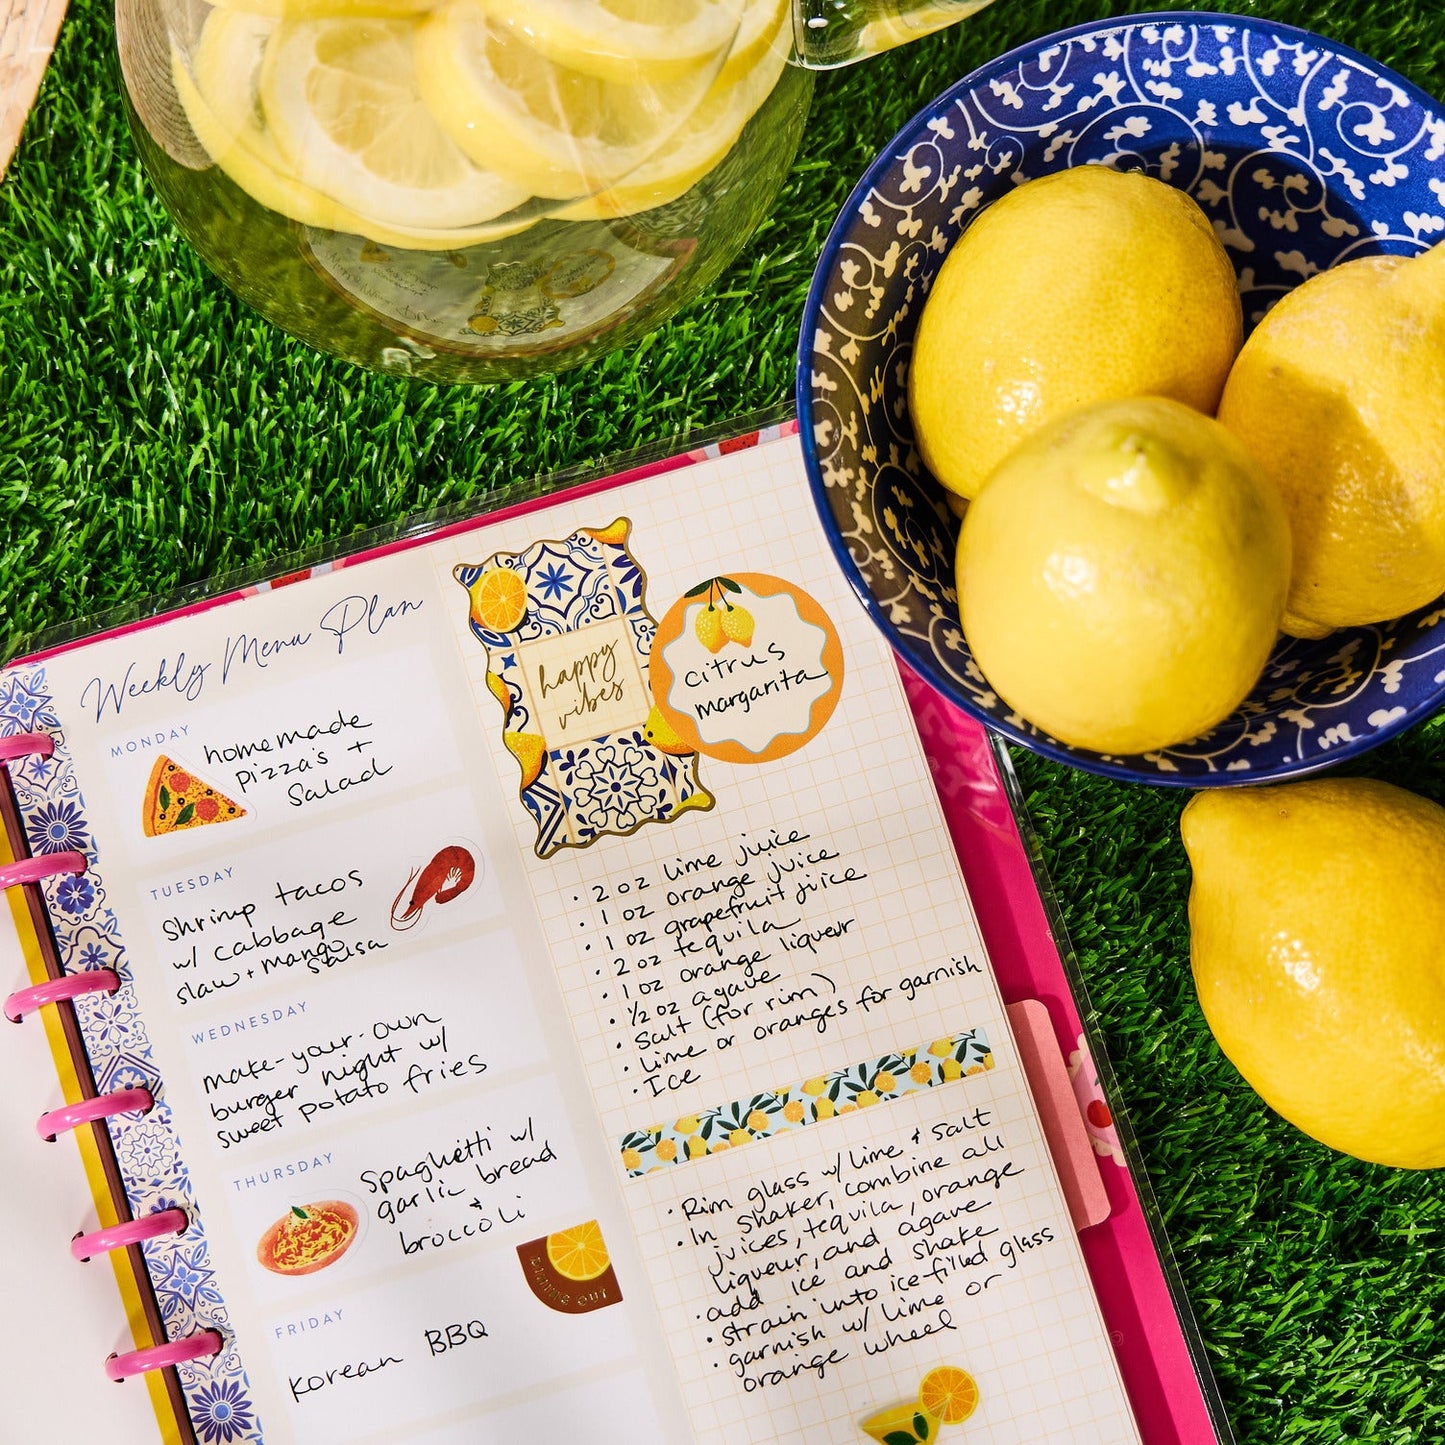 Weekly Menu Plan
MONDAY
homemade
pizza's +
salad
TUESDAY
Shrimp tacos
w/ cabbage
slaw + mango
salsa
WEDNESDAY
make-your-own
burger night w/
sweet potato fries
THURSDAY
Spaghetti w/
garlic bread
&
broccoli
DINING OUT
FRIDAY
Korean BBQ
happy
vibes
citrus
margarita
· 2 oz lime juice
· 1 oz orange juice
· 1 oz grapefruit juice
· 2 oz tequila
· 1 oz orange liqueur
· ½ oz agave
· salt (for rim)
· lime or oranges for garnish
· Ice
· Rim glass w/ lime & salt
· In shaker, combine all
juices, tequila, orange
liqueur, and agave
· add ice and shake
· strain into ice-filled glass
· garnish w/ lime or
orange wheel